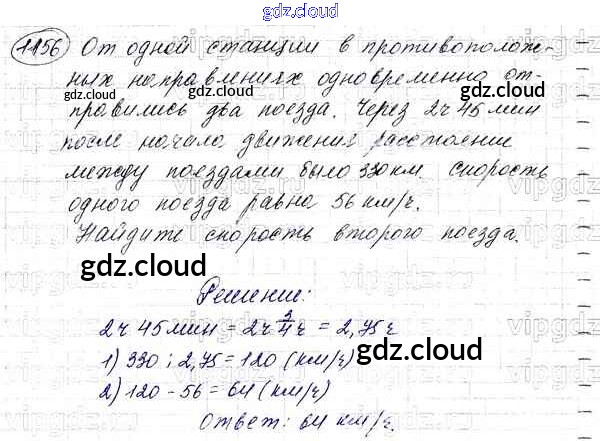 gdz.cloud
gdz.cloud
1156 От одной станции в противополож-
ных направлениях одновременно от-
gdz.cloud
правились два поезда. Через 2ч 45 мин
после начала движения расстояние
между поездами было 330 км. Скорость
одного поезда равна 56 км/ч.
Найдите скорость второго поезда.
gdz.cloud
gdz.cloud
Решение:
2ч 45мин = 2ч 3/4 ч = 2,75 ч
1) 330 : 2,75 = 120 (км/ч)
2) 120 - 56 = 64 (км/ч)
gdz.cloud
Ответ: 64 км/ч.